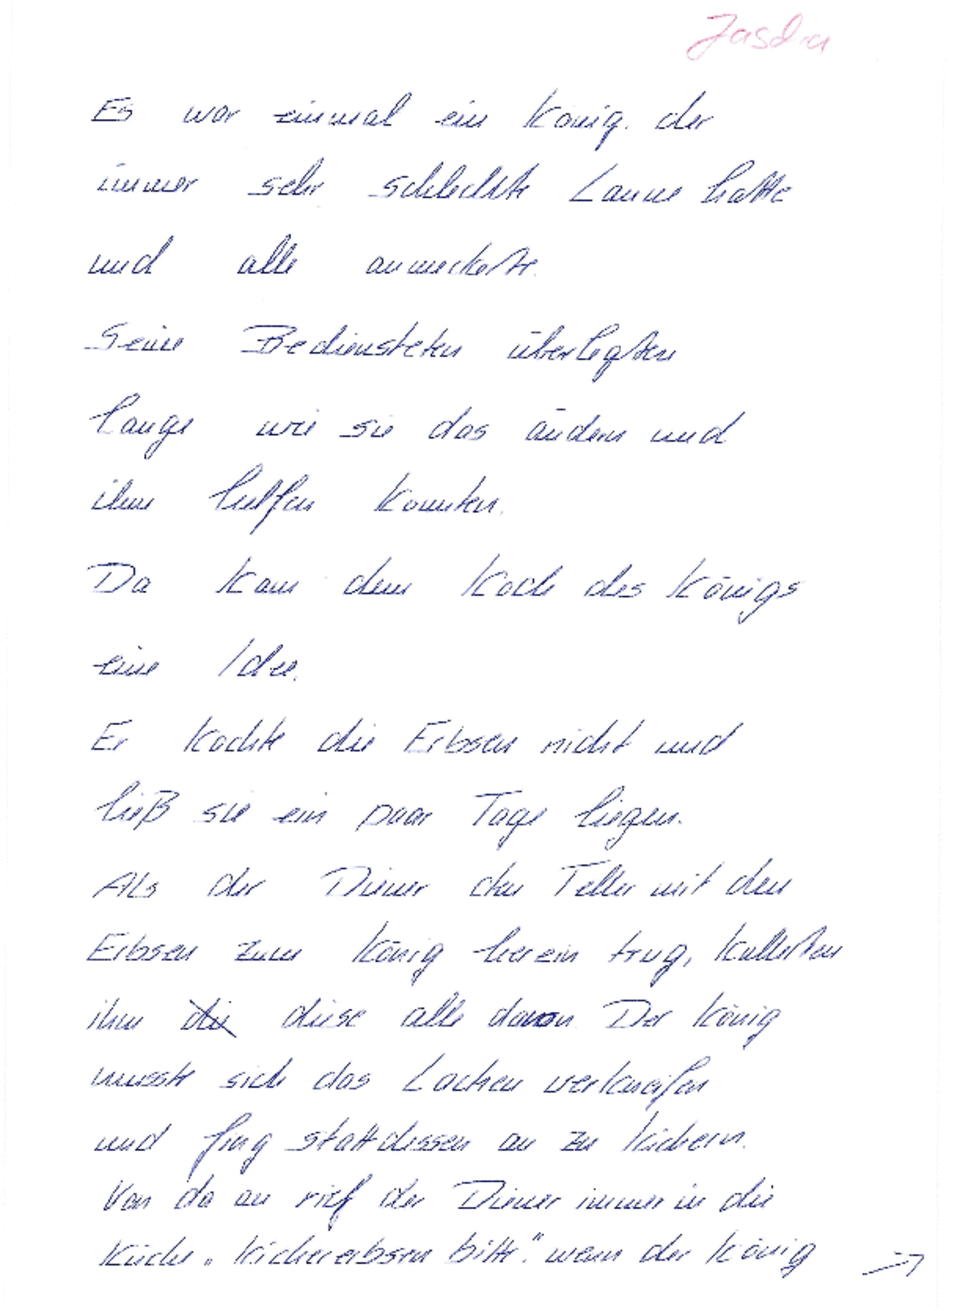 Es war einmal ein König, der
immer sehr schlechte Laune hatte
und alle anmeckerte.
Seine Bediensteten überlegten
lange wie sie das ändern und
ihm helfen konnten.
Da kam dem Koch des Königs
eine Idee.
Er kochte die Erbsen nicht und
ließ sie ein paar Tage liegen.
Als der Diener den Teller mit den
Erbsen zum König herein trug, kullerten
ihm die diese alle davon. Der König
musste sich das Lachen verkneifen
und fing stattdessen an zu kichern.
Von da an rief der Diener immer in die
Küche „Kichererbsen bitte." wenn der König